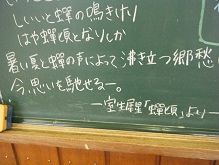 しいいと蟬の鳴きけり
はや蟬頃となりしか
暑い夏と蟬の声によって沸き立つ郷愁
今、思いを馳せるー。
ー室生犀星「蟬頃」より ー